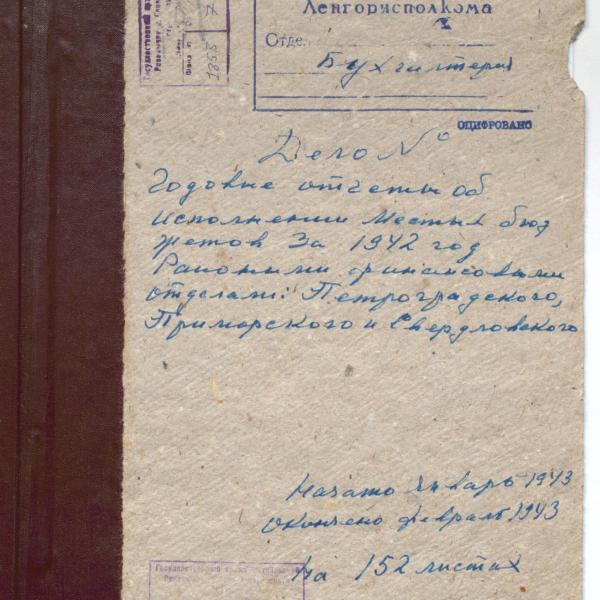 Ленгорисполкома
Отде
Бухгалтерия
ОЦИФРОВАНО
Дело №
Годовые отчеты об
исполнении местных бюд
жетов за 1942 год
Районными финансовыми
отделами: Петроградского,
Приморского и Свердловского
Начато январь 1943
окончено февраль 1943
на 152 листах
Государственный
1853
Государственный